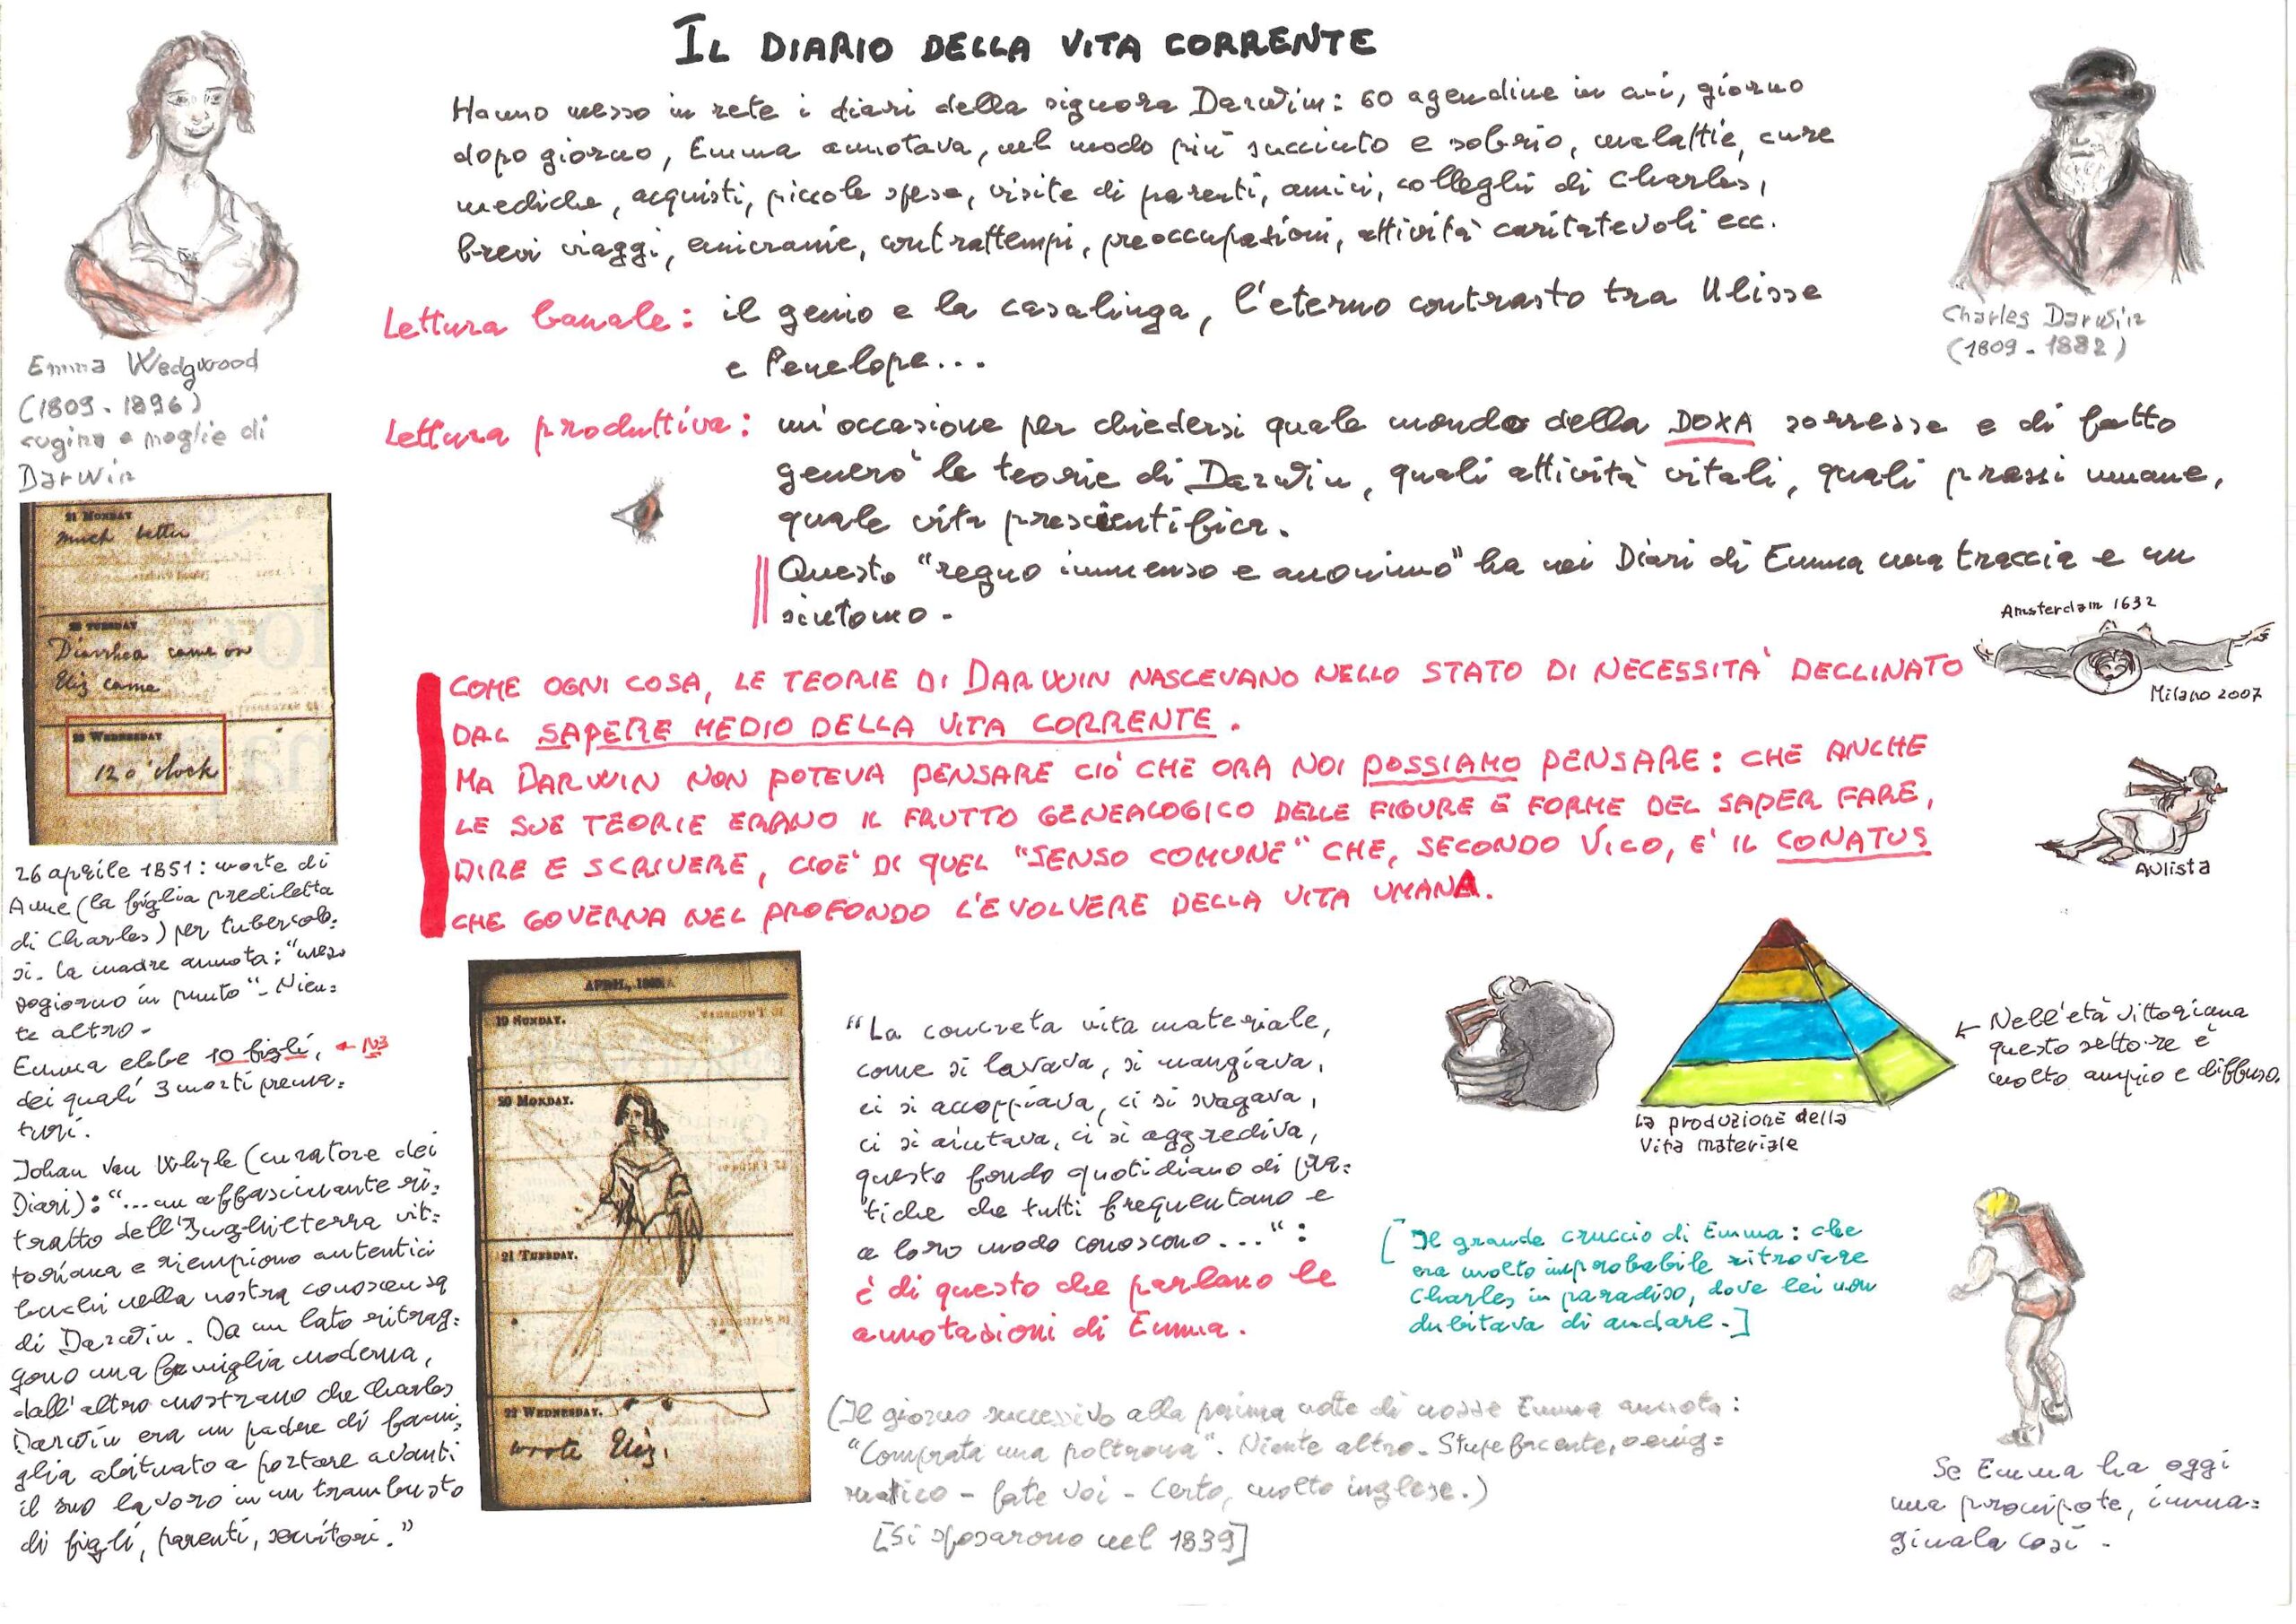 IL DIARIO DELLA VITA CORRENTE
Hanno messo in rete i diari della signora Darwin: 60 agendine in cui, giorno
dopo giorno, Emma annotava, nel modo più succinto e sobrio, malattie, cure
mediche, acquisti, piccole spese, visite di parenti, amici, colleghi di Charles,
brevi viaggi, emicranie, contrattempi, preoccupazioni, attività caritatevoli ecc.
Emma Wedgwood
(1809-1896)
cugina e moglie di
Darwin
Charles Darwin
(1809-1882)
Lettura banale: il genio e la casalinga, l'eterno contrasto tra Ulisse
e Penelope...
Lettura produttiva: un'occasione per chiedersi quale mondo della DOXA sorresse e di fatto
generò le teorie di Darwin, quali attività vitali, quali prassi umane,
quale vita prescientifica.
Questo "regno immenso e anonimo" ha nei Diari di Emma una traccia e un
sintomo -
21 MONDAY
much better
22 TUESDAY
Diarrhea came on
Eliz came
23 WEDNESDAY
12 o'clock
Amsterdam 1632
Milano 2007
COME OGNI COSA, LE TEORIE DI DARWIN NASCEVANO NELLO STATO DI NECESSITA' DECLINATO
DAL SAPERE MEDIO DELLA VITA CORRENTE.
MA DARWIN NON POTEVA PENSARE CIÒ CHE ORA NOI POSSIAMO PENSARE: CHE ANCHE
LE SUE TEORIE ERANO IL FRUTTO GENEALOGICO DELLE FIGURE E FORME DEL SAPER FARE,
DIRE E SCRIVERE, CIOE' DI QUEL "SENSO COMUNE" CHE, SECONDO VICO, E' IL CONATUS
CHE GOVERNA NEL PROFONDO L'EVOLVERE DELLA VITA UMANA.
Aulista
26 aprile 1851: morte di
Anne (la figlia prediletta
di Charles) per tubercolo=
si. La madre annota: "mez=
zogiorno in punto". Nien=
te altro -
Emma ebbe 10 figli, ← N3
dei quali 3 morti prema=
turi.
Johan van Whyle (curatore dei
Diari): "...un affascinante ri=
tratto dell'Inghilterra vit=
toriana e riempiono autentici
buchi nella nostra conoscenza
di Darwin. Da un lato ritrag=
gono una famiglia moderna,
dall'altro mostrano che Charles
Darwin era un padre di fami=
glia abituato a portare avanti
il suo lavoro in un trambusto
di figli, parenti, servitori."
APRIL,
19 MONDAY.
20 MONDAY.
21 TUESDAY.
22 WEDNESDAY.
wrote Eliz.
"La concreta vita materiale,
come si lavava, si mangiava,
ci si accoppiava, ci si svagava,
ci si aiutava, ci si aggrediva,
questo fondo quotidiano di pra=
tiche che tutti frequentano e
a loro modo conoscono...":
è di questo che parlano le
annotazioni di Emma.
La produzione della
vita materiale
← Nell'età vittoriana
questo settore è
molto ampio e diffuso.
[Il grande cruccio di Emma: che
era molto improbabile ritrovare
Charles in paradiso, dove lei non
dubitava di andare.]
(Il giorno successivo alla prima notte di nozze Emma annota:
"Comprata una poltrona". Niente altro. Stupefacente, o enig=
matico - fate voi - Certo, molto inglese.)
[Si sposarono nel 1839]
Se Emma ha oggi
una pronipote, imma=
ginala così -